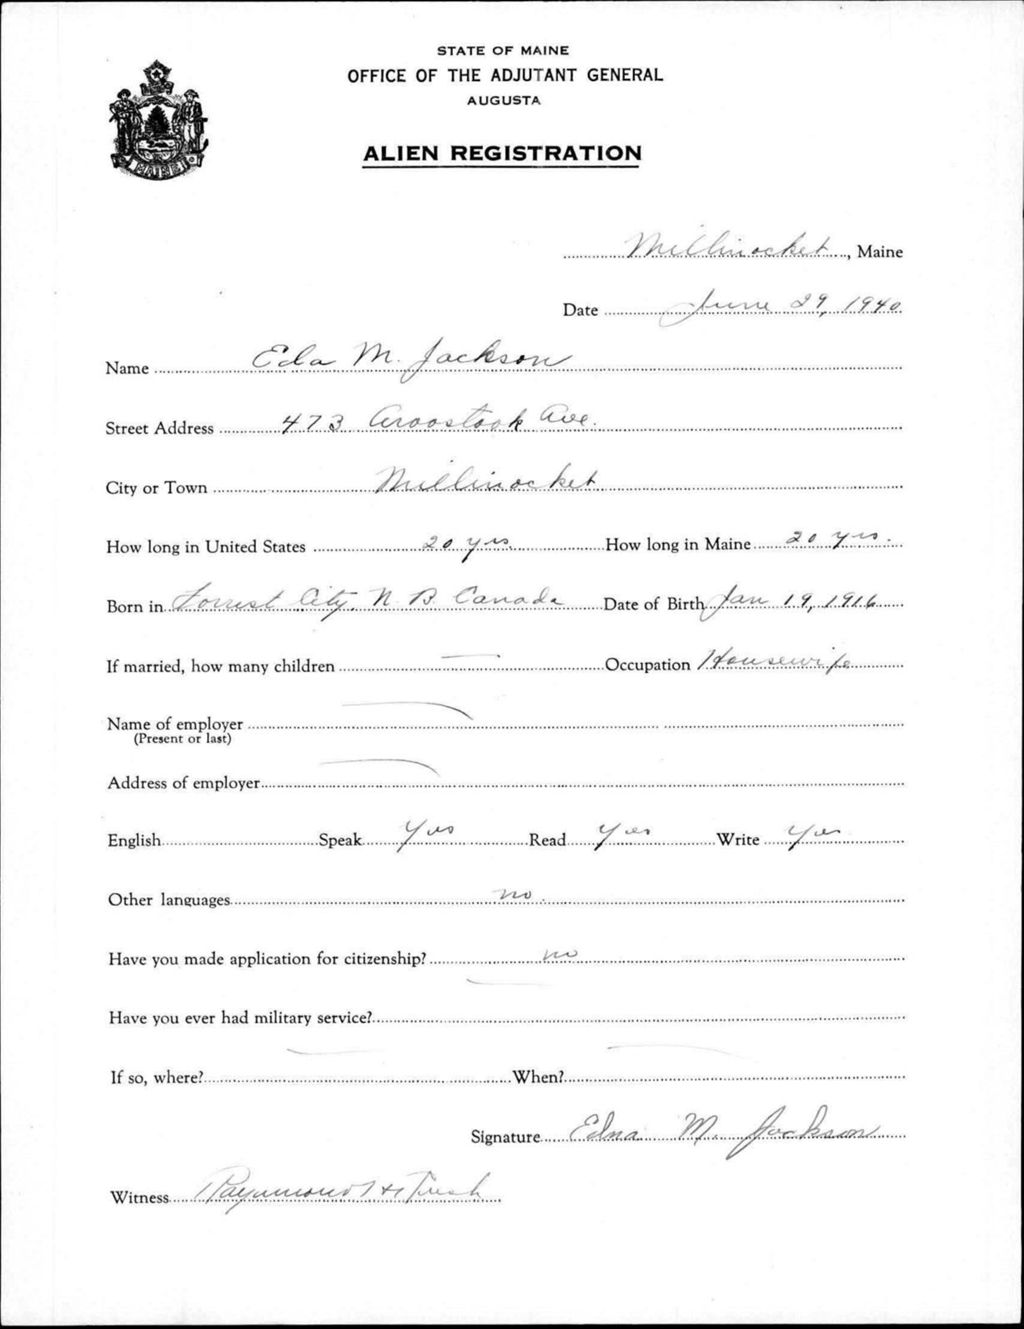 STATE OF MAINE
OFFICE OF THE ADJUTANT GENERAL
AUGUSTA
ALIEN REGISTRATION
MAINE
Millinocket, Maine
Date June 29, 1940
Name Eda M. Jackson
Street Address 473 Aroostook Ave.
City or Town Millinocket
How long in United States 20 yrs. How long in Maine 20 yrs.
Born in Forrest City, N. B. Canada Date of Birth Jan 19, 1916
If married, how many children — Occupation Housewife
Name of employer —
(Present or last)
Address of employer —
English Speak Yes Read Yes Write Yes
Other languages no.
Have you made application for citizenship? no
Have you ever had military service? —
If so, where? — When? —
Signature Edna M. Jackson
Witness Raymond H